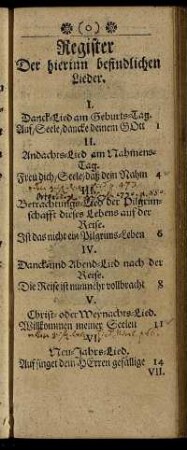 (o)
Register
Der hierinn befindlichen
Lieder.
I.
Danck-Lied am Geburts-Tag.
Auf, Seele, dancke deinem GOtt 1
II.
Andachts-Lied am Nahmens-
Tag.
Freu dich, Seele, daß dein Nahm 4
III.
Betrachtungs-Lied der Pilgrim-
schafft dieses Lebens auf der
Reise.
Ist das nicht ein Pilgrims-Leben 6
IV.
Danck- und Abend-Lied nach der
Reise.
Die Reise ist nunmehr vollbracht 8
V.
Christ- oder Weynachts-Lied.
Willkommen meiner Seelen 11
VI.
Neu-Jahrs-Lied.
Auf singet dem HErren gefällige 14
VII.